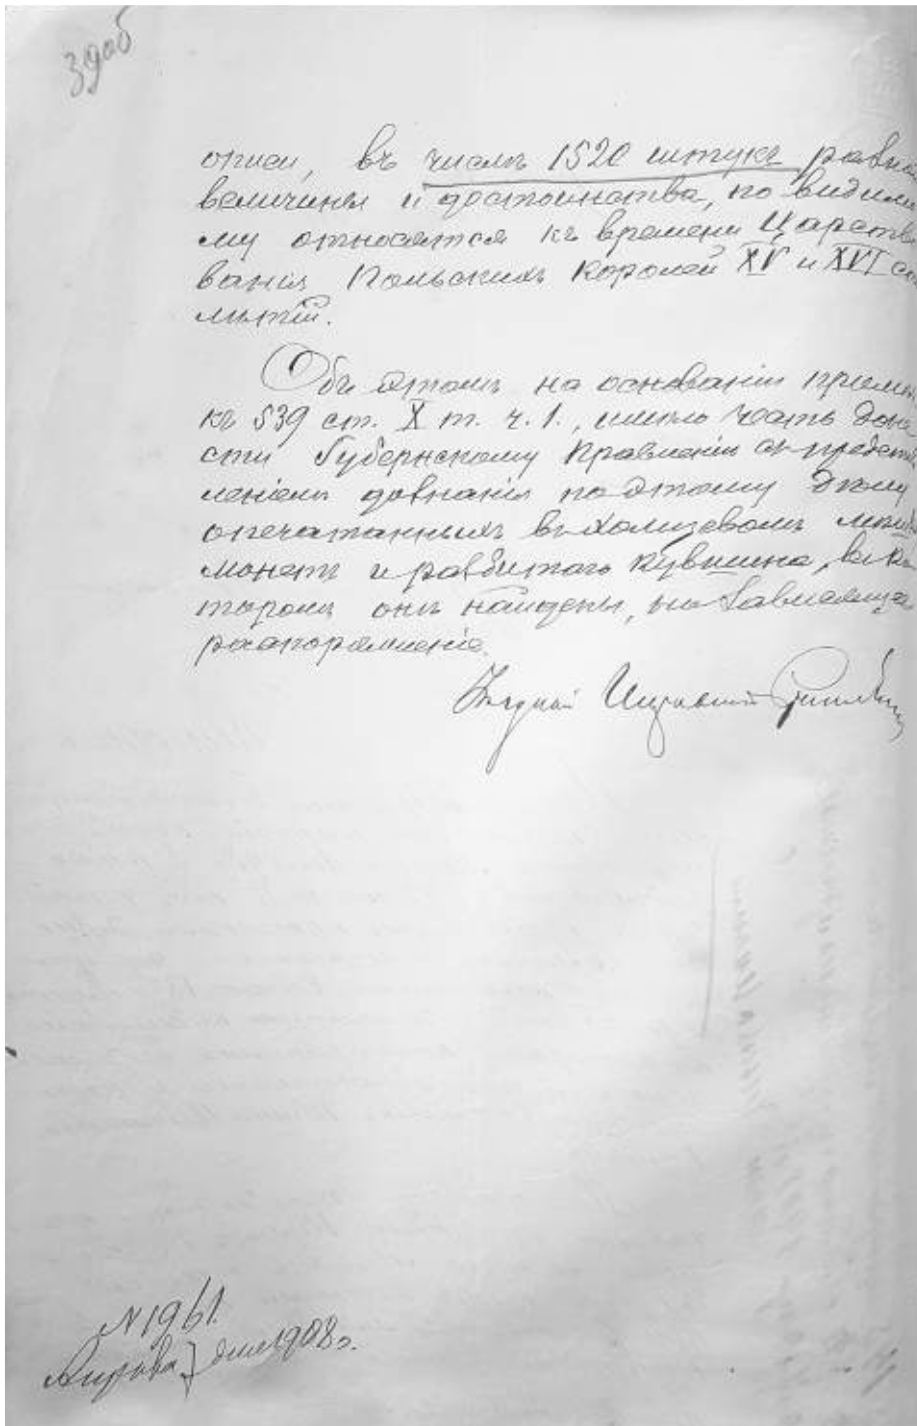 описи, въ числѣ 1520 штукъ разной
величины и достоинства, по видимо
му относятся къ времени Царство
ванія Польскихъ Королей XV и XVI сто
лѣтій.
Объ этомъ на основаніи примѣч.
къ 539 ст. X т. ч. 1., имѣю честь доне
сти Губернскому Правленію съ представ
леніемъ дознанія по этому дѣлу
опечатанныхъ въ холщевомъ мѣшкѣ
монетъ и разбитаго кувшина, въ ко
торомъ онѣ найдены, на зависящее
распоряженіе.
Уѣздный Исправникъ
N 1961.
дня 1908 г.